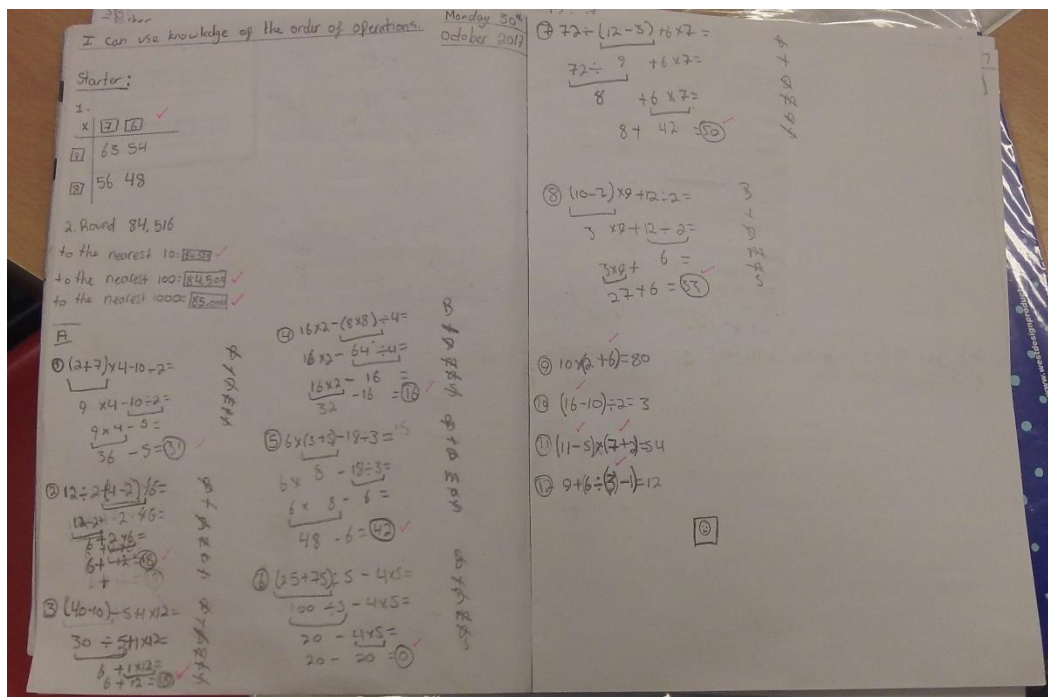 I can use knowledge of the order of operations.
Monday 30th
October 2017
Starter:
1.
× 7 6
9 63 54
8 56 48
2. Round 84,516
to the nearest 10:
to the nearest 100: 84,500
to the nearest 1000: 85,000
A
① (2+7)×4-10÷2=
9 ×4-10÷2=
9×4-5=
36 -5=31
② 12÷2+(4-2)×6=
③ (40-10)÷5+1×12=
30 ÷5+1×12=
6 +1×12=
6+12=18
④ 16×2-(8×8)÷4=
16×2-64÷4=
16×2-16 =
32 -16 =16
⑤ 6×(3+5)-18÷3=
6× 8 -18÷3=
6× 8 -6=
48 -6=42
⑥ (25+75)÷5-4×5=
100 ÷5-4×5=
20 -4×5=
20- 20 =0
⑦ 72÷(12-3)+6×7=
72÷ 9 +6×7=
8 +6×7=
8+ 42 =50
⑧ (10-7)×9+12÷2=
3 ×9+12÷2=
3×9+ 6 =
27+6=33
⑨ 10×(2+6)=80
⑩ (16-10)÷2=3
⑪ (11-5)×(7+2)=54
⑫ 9+(6÷(3)-1)=12
B
I
D
M
A
S